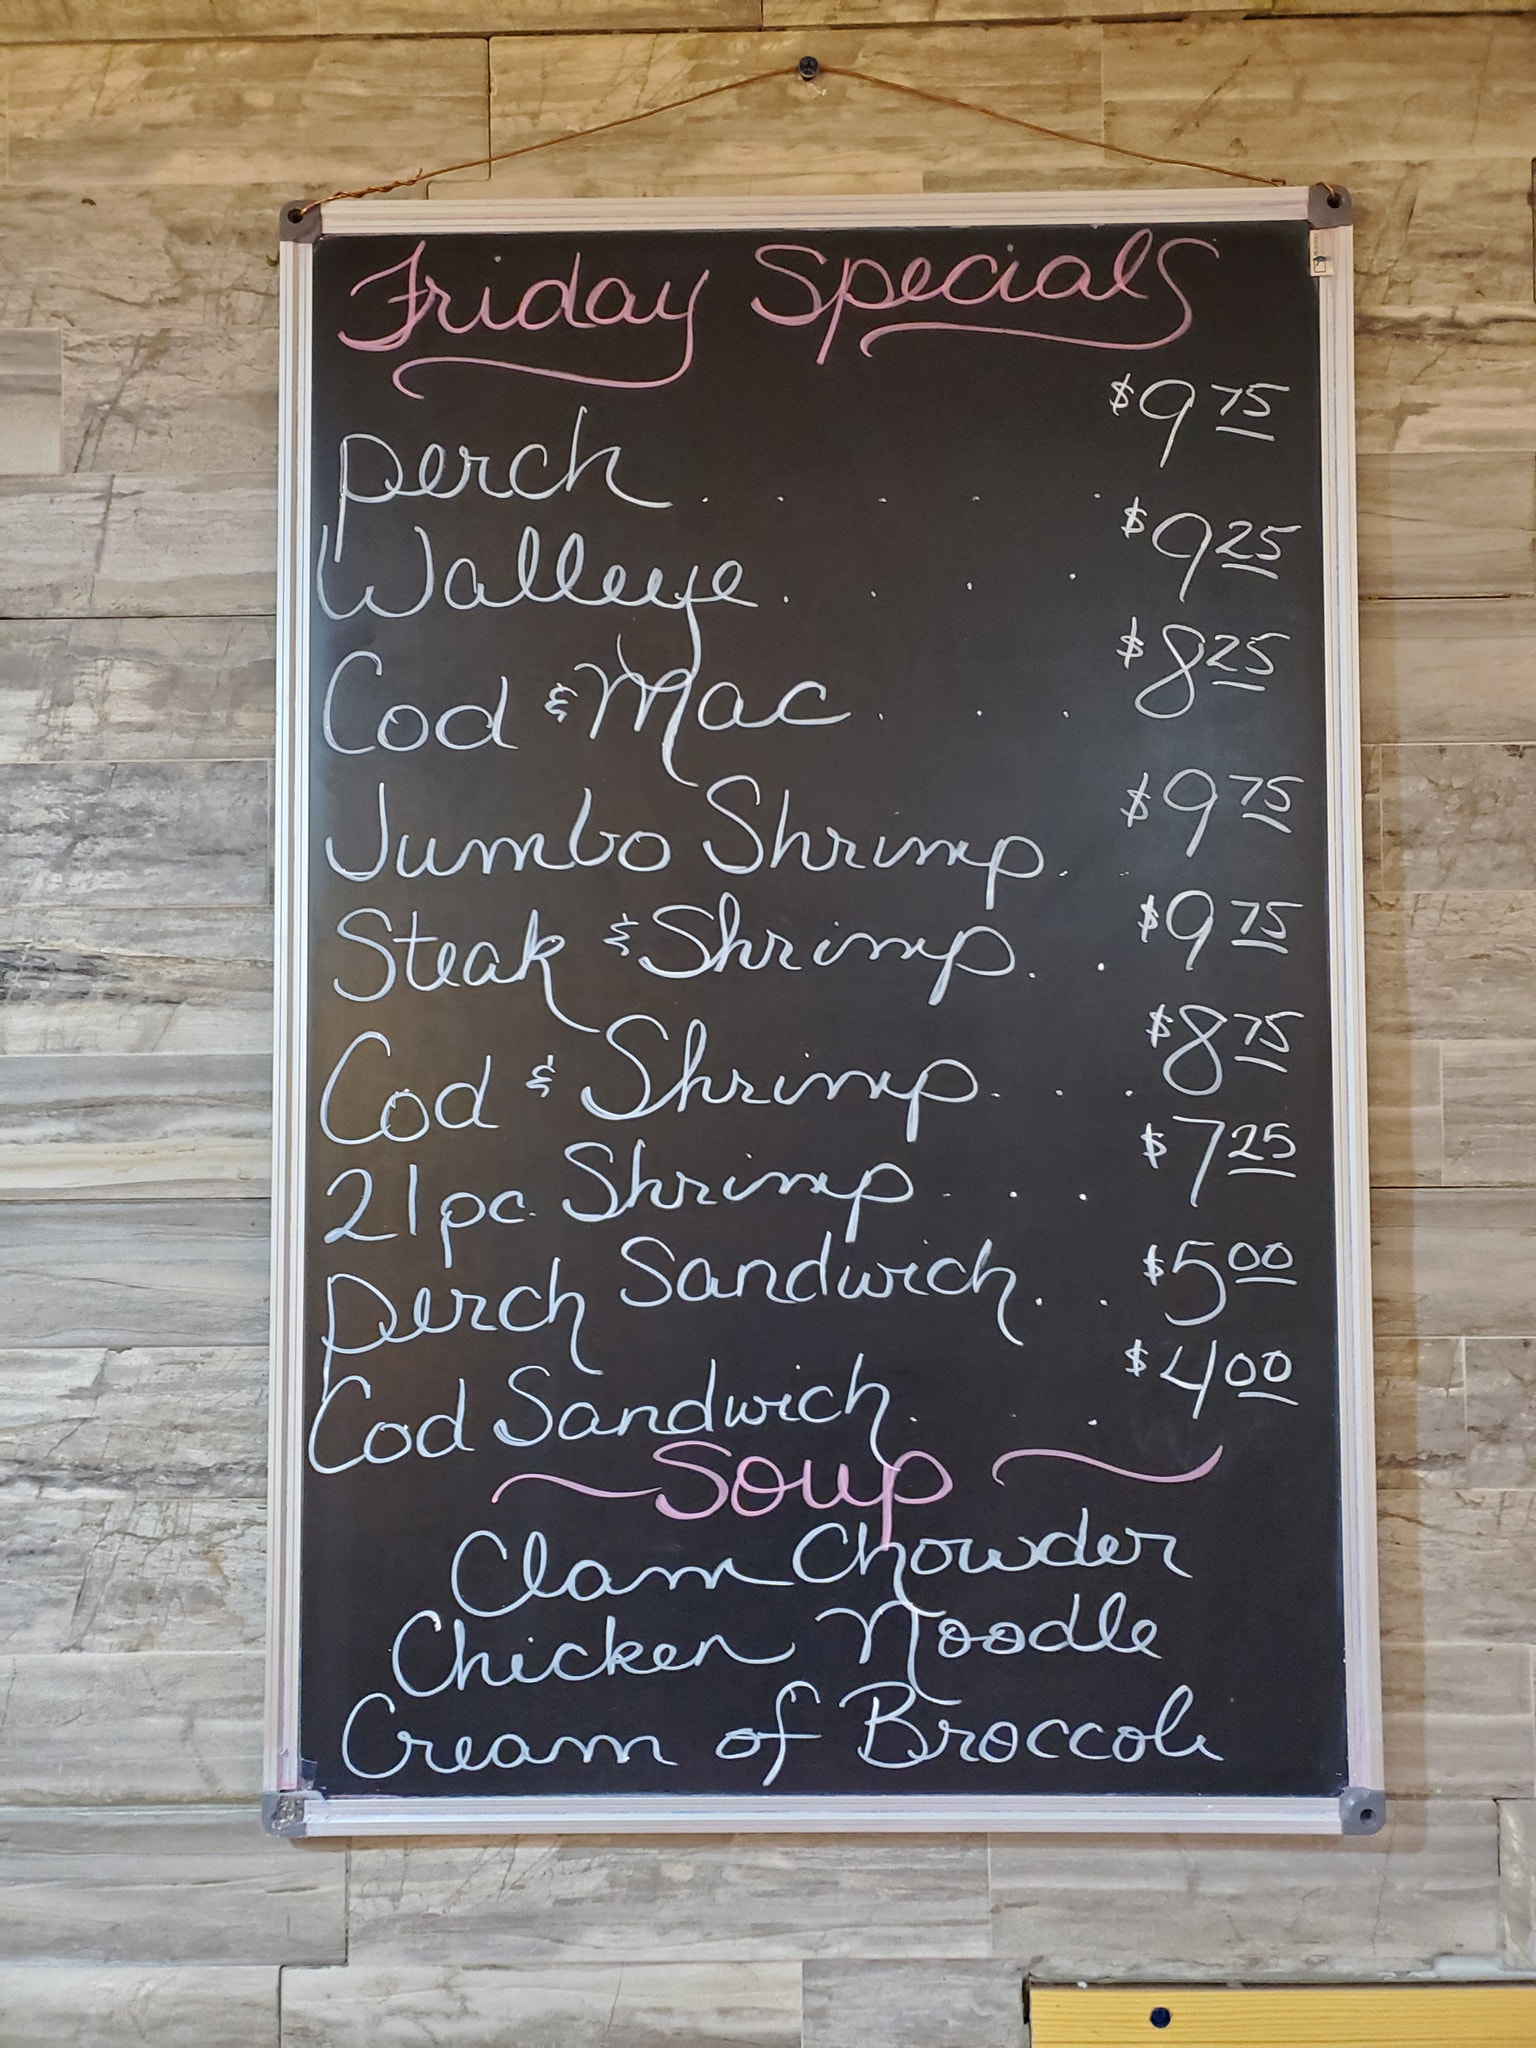 Friday Specials
Perch . . . . . $9.75
Walleye . . . . $9.25
Cod & Mac . . . $8.25
Jumbo Shrimp . . $9.75
Steak & Shrimp . . $9.75
Cod & Shrimp . . . $8.75
21 pc. Shrimp . . . $7.25
Perch Sandwich . . $5.00
Cod Sandwich . . . $4.00
~ Soup ~
Clam Chowder
Chicken Noodle
Cream of Broccoli